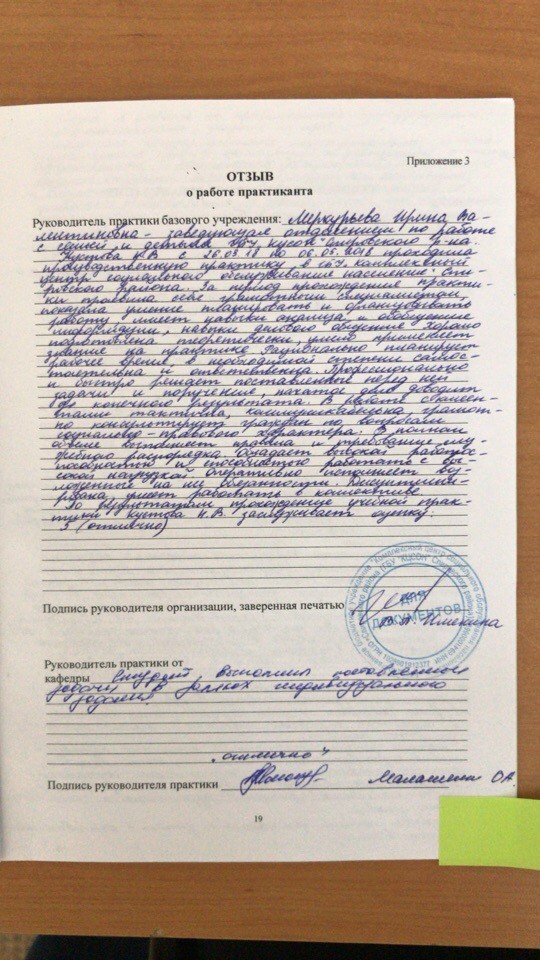 Приложение 3
ОТЗЫВ
о работе практиканта
Руководитель практики базового учреждения: Меркурьева Ирина Ва-
лентиновна - заведующая отделением по работе
с семьей и детьми
с 26.03.18 по 06.06.2018 проходила
производственную практику в комплексный
центр социального обслуживания населения
района. За период прохождения практи-
ки проявила себя грамотным специалистом,
показала умение планировать и организовывать
работу, имеет навыки анализа, обобщения
информации, навыки делового общения. Хорошо
подготовлена теоретически, умело применяет
знания на практике. Рационально планирует
рабочее время. В необходимой степени самос-
тоятельна и ответственна. Профессионально
и быстро решает поставленные перед ней
задачи и поручения, начатое дело доводит
до конечного результата. В работе с клиен-
тами тактична, коммуникабельна, грамот-
но консультирует граждан по вопросам
социально-правового характера. В полном
объеме выполняет правила и требования слу-
жебного распорядка. Обладает высокой работос-
пособностью и способностью работать с вы-
сокой нагрузкой. Оперативно исполняет воз-
ложенные на неё обязанности. Дисциплини-
рована, умеет работать в коллективе.
По результатам прохождения учебной прак-
тики Кустова Н.В. заслуживает оценку:
5 (отлично)
Подпись руководителя организации, заверенная печатью
ДЛЯ
ДОКУМЕНТОВ
Руководитель практики от
кафедры студент выполнил поставленные
задачи в рамках индивидуального
задания.
"отлично"
Подпись руководителя практики
19